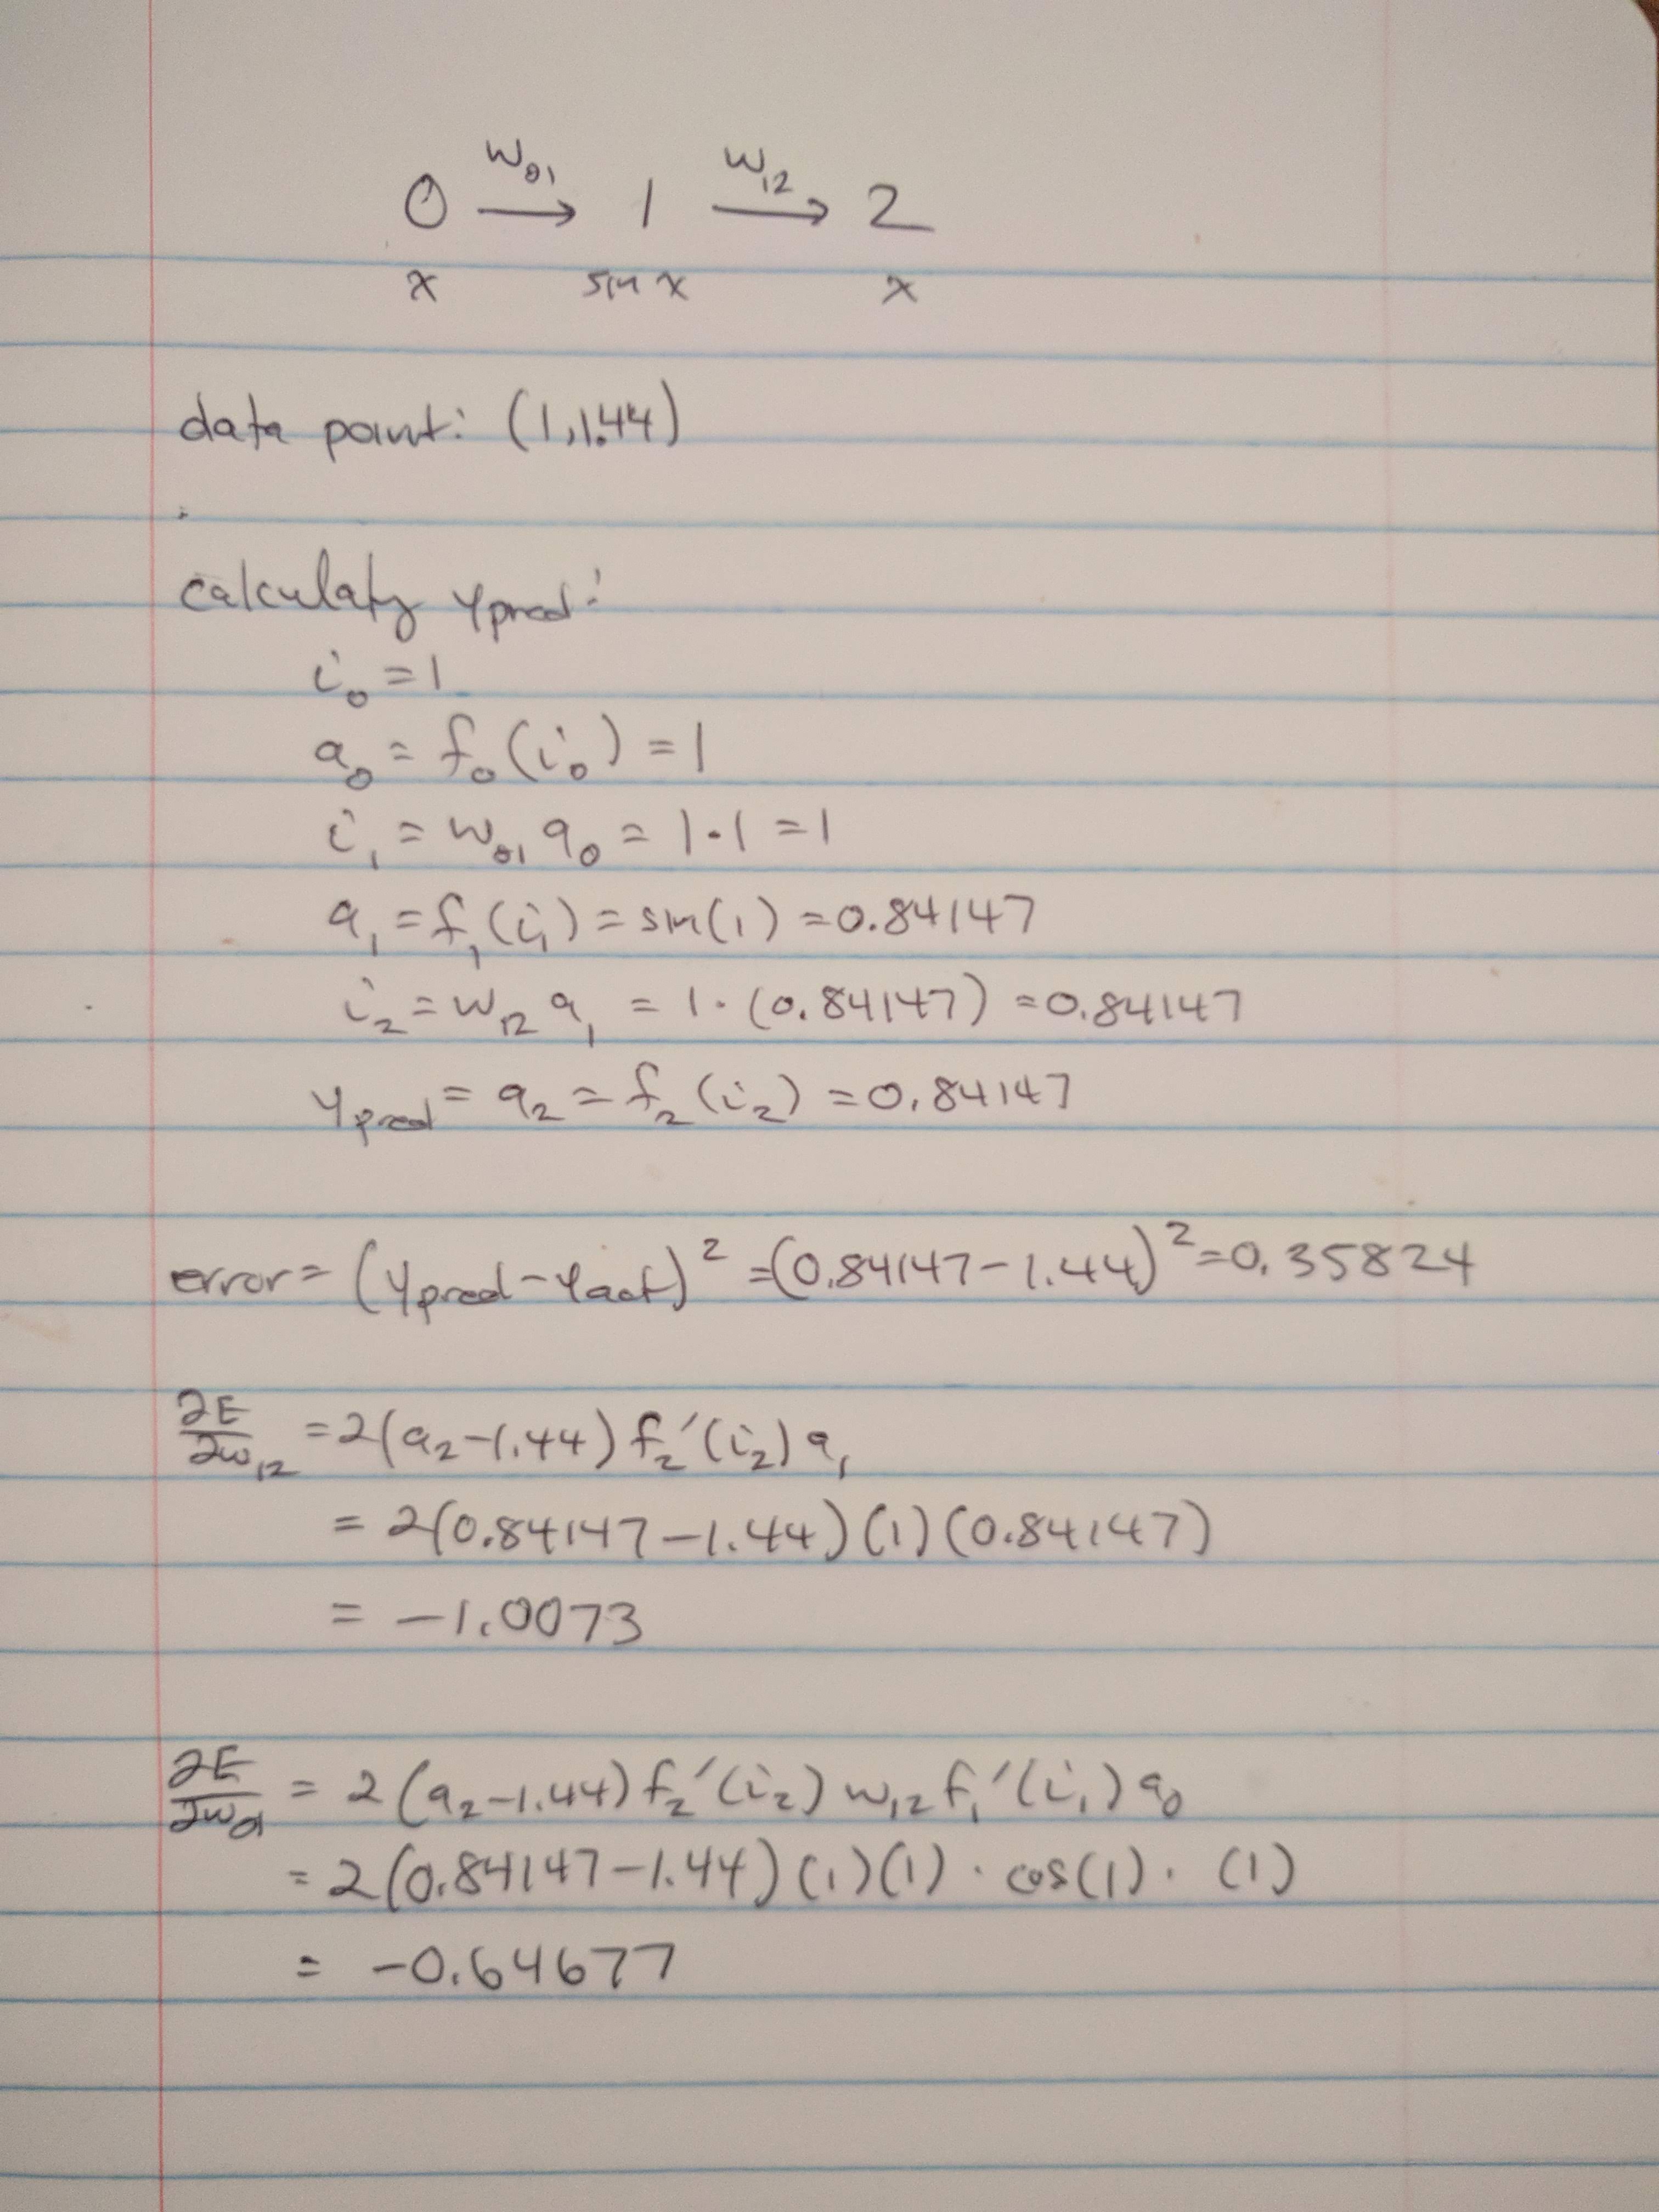 w₀₁ w₁₂
0 → 1 → 2
x sin x x
data point: (1,1.44)
calculatg ypred:
i₀ = 1
a₀ = f₀(i₀) = 1
i₁ = w₀₁ a₀ = 1·1 = 1
a₁ = f₁(i₁) = sin(1) = 0.84147
i₂ = w₁₂ a₁ = 1·(0.84147) = 0.84147
ypred = a₂ = f₂(i₂) = 0.84147
error = (ypred - yact)² = (0.84147 - 1.44)² = 0.35824
∂E/∂w₁₂ = 2(a₂ - 1.44) f₂′(i₂) a₁
= 2(0.84147 - 1.44)(1)(0.84147)
= -1.0073
∂E/∂w₀₁ = 2(a₂ - 1.44) f₂′(i₂) w₁₂ f₁′(i₁) a₀
= 2(0.84147 - 1.44)(1)(1)·cos(1)·(1)
= -0.64677